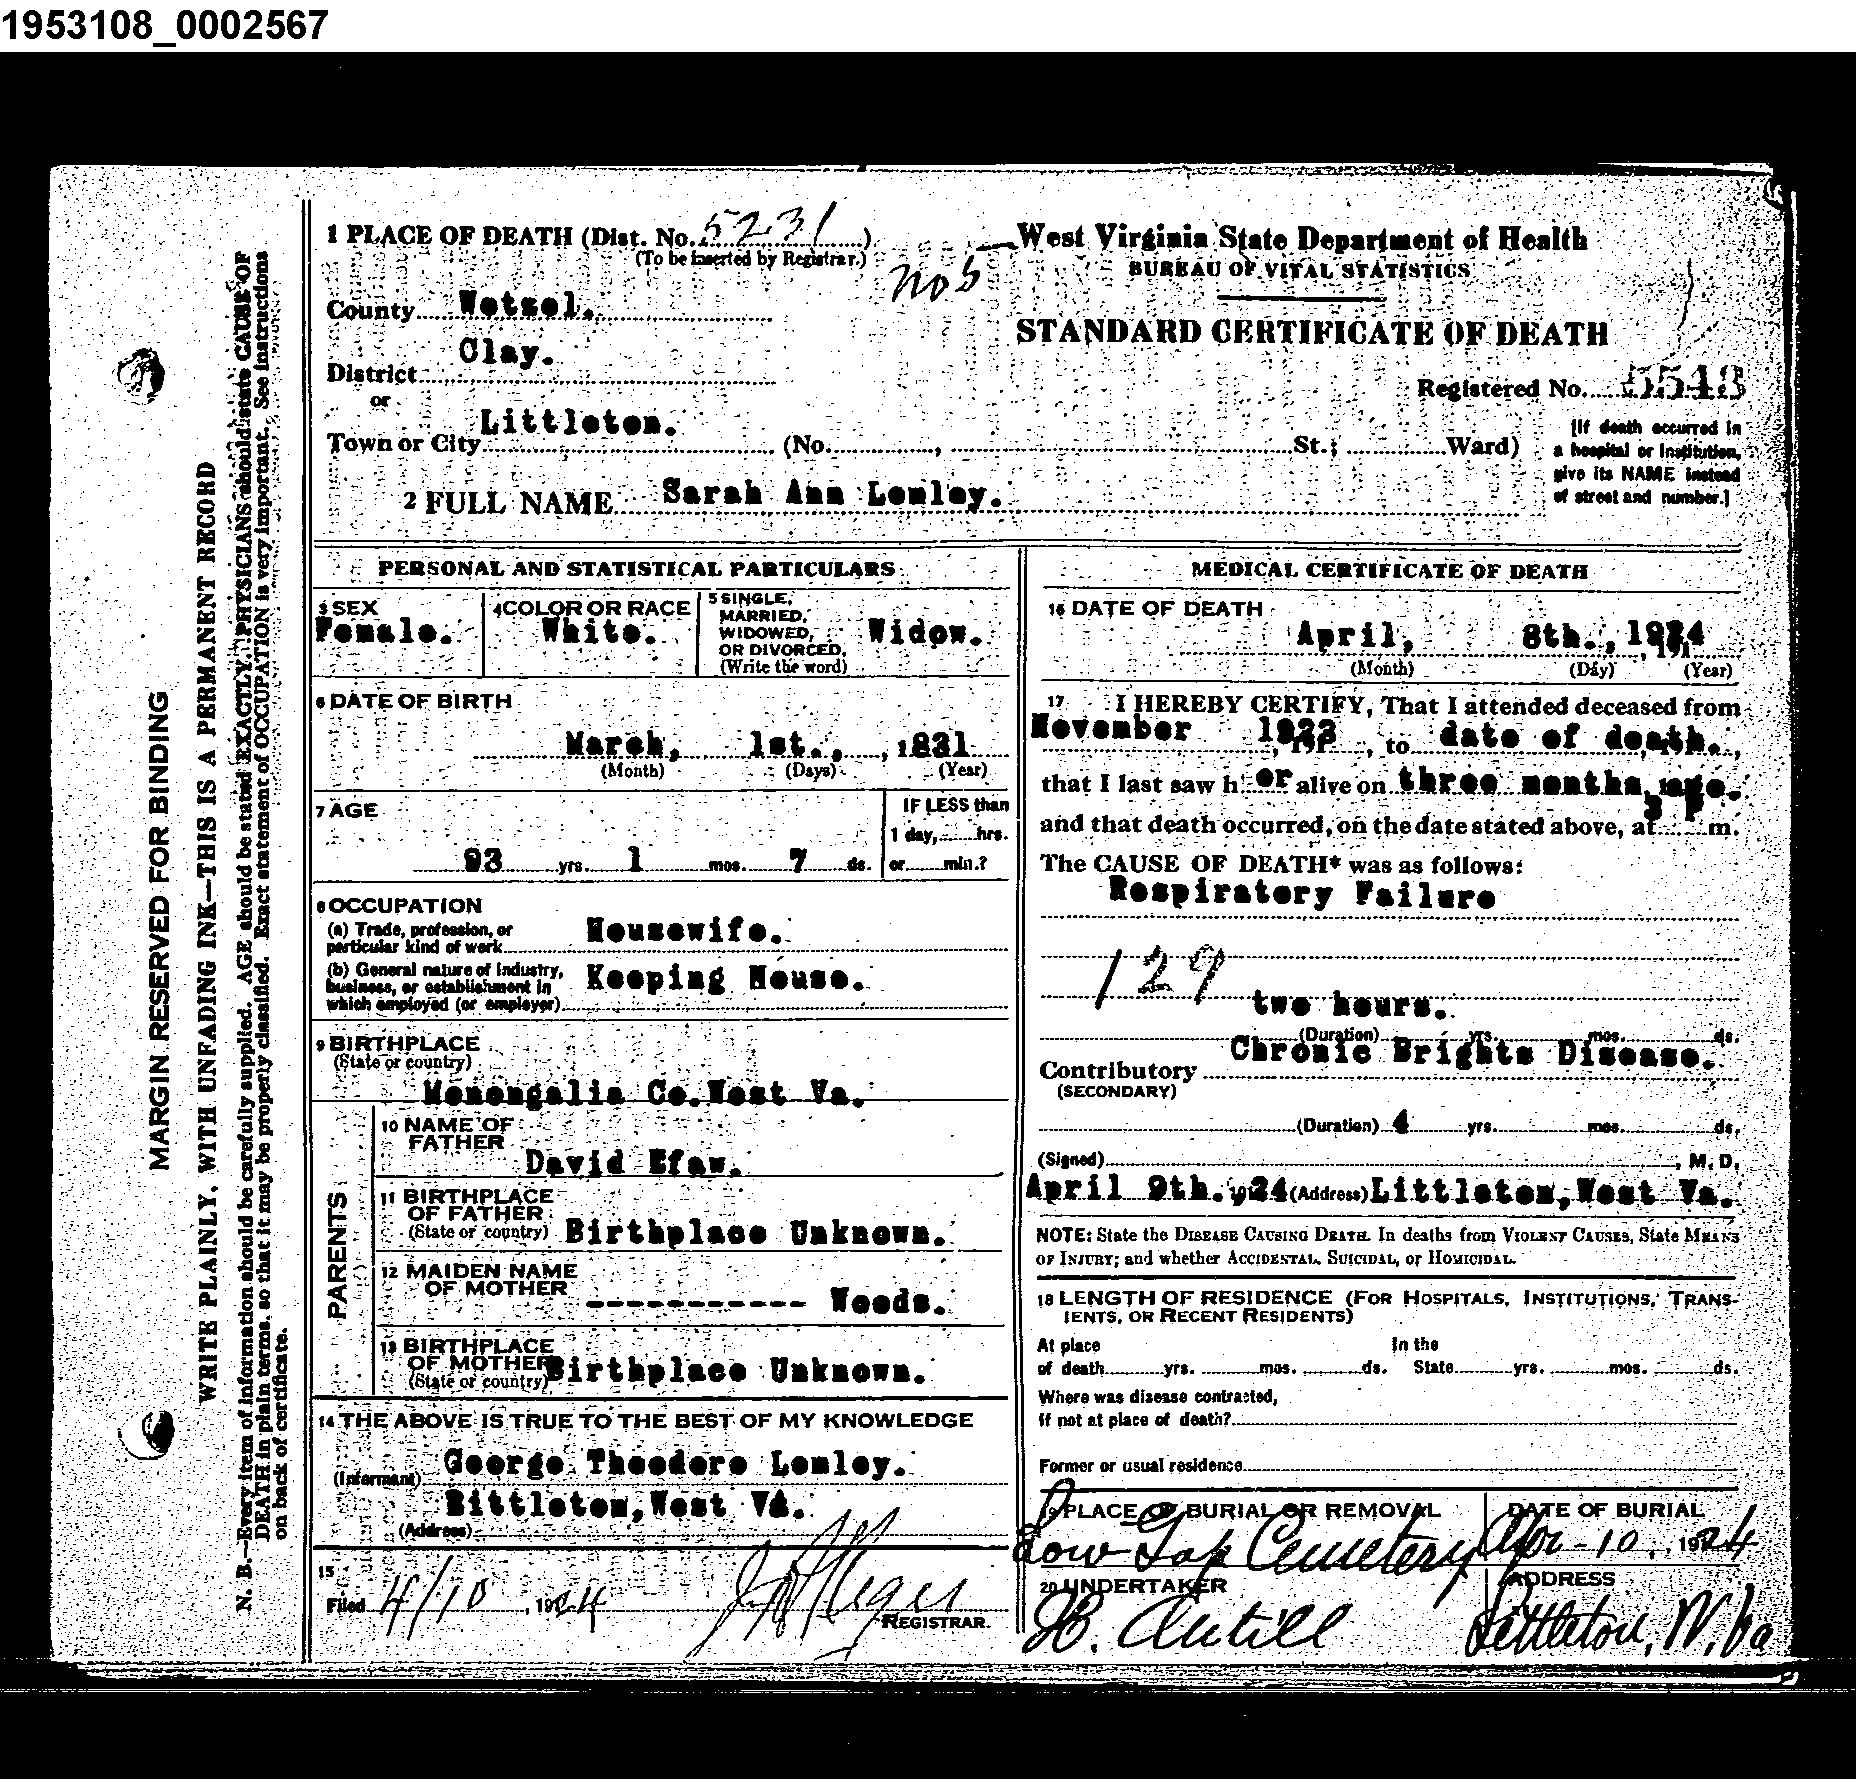 1953108_0002567
1 PLACE OF DEATH (Dist. No. 5231)
(To be inserted by Registrar.)
No 5
County Wetzel.
District Clay.
or
Town or City Littleton. (No. , St.; Ward)
2 FULL NAME Sarah Ann Lemley.
West Virginia State Department of Health
BUREAU OF VITAL STATISTICS
STANDARD CERTIFICATE OF DEATH
Registered No. 5543
[If death occurred in
a hospital or institution,
give its NAME instead
of street and number.]
MARGIN RESERVED FOR BINDING
WRITE PLAINLY, WITH UNFADING INK—THIS IS A PERMANENT RECORD
N. B.—Every item of information should be carefully supplied. AGE should be stated EXACTLY. PHYSICIANS should state CAUSE OF
DEATH in plain terms, so that it may be properly classified. Exact statement of OCCUPATION is very important. See instructions
on back of certificate.
PERSONAL AND STATISTICAL PARTICULARS
3 SEX
Female.
4 COLOR OR RACE
White.
5 SINGLE,
MARRIED,
WIDOWED,
OR DIVORCED,
(Write the word)
Widow.
6 DATE OF BIRTH
March, 1st., , 1831
(Month) (Days) (Year)
7 AGE
93 yrs. 1 mos. 7 ds.
IF LESS than
1 day, hrs.
or min.?
8 OCCUPATION
(a) Trade, profession, or
particular kind of work Housewife.
(b) General nature of Industry,
business, or establishment in
which employed (or employer) Keeping House.
9 BIRTHPLACE
(State or country)
Monongalia Co.West Va.
PARENTS
10 NAME OF
FATHER
David Efaw.
11 BIRTHPLACE
OF FATHER
(State or country) Birthplace Unknown.
12 MAIDEN NAME
OF MOTHER ----------- Woods.
13 BIRTHPLACE
OF MOTHER Birthplace Unknown.
(State or country)
14 THE ABOVE IS TRUE TO THE BEST OF MY KNOWLEDGE
(Informant) George Theodore Lemley.
Bittleton,West VA.
(Address)
15
Filed 4/10, 1924
REGISTRAR.
MEDICAL CERTIFICATE OF DEATH
16 DATE OF DEATH
April, 8th., 1924
(Month) (Day) (Year)
17 I HEREBY CERTIFY, That I attended deceased from
November 1923, to date of death.,
that I last saw h er alive on three months ago.
and that death occurred, on the date stated above, at 3 P m.
The CAUSE OF DEATH* was as follows:
Respiratory Failure
129
two hours.
(Duration) yrs. mos. ds.
Contributory Chronic Brights Disease.
(SECONDARY)
(Duration) 4 yrs. mos. ds.
(Signed) , M. D.
April 9th. 1924 (Address) Littleton,West Va.
NOTE: State the DISEASE CAUSING DEATH. In deaths from VIOLENT CAUSES, State MEANS
OF INJURY; and whether ACCIDENTAL, SUICIDAL, or HOMICIDAL.
18 LENGTH OF RESIDENCE (FOR HOSPITALS, INSTITUTIONS, TRANS-
IENTS, OR RECENT RESIDENTS)
At place In the
of death yrs. mos. ds. State yrs. mos. ds.
Where was disease contracted,
if not at place of death?
Former or usual residence
19 PLACE OF BURIAL OR REMOVAL
Low Gap Cemetery
DATE OF BURIAL
Apr-10, 1924
20 UNDERTAKER
H. Antill
ADDRESS
Littleton, W. Va